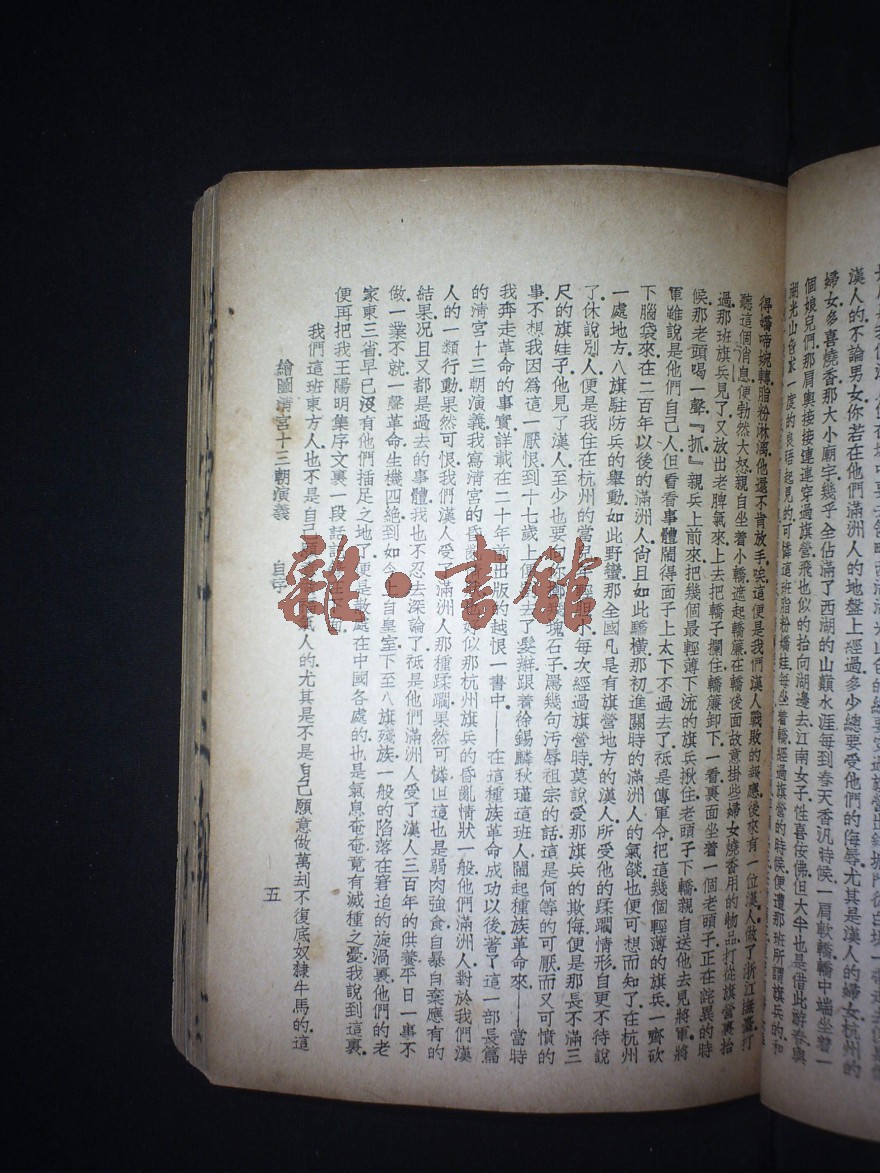 漢人的.不論男女.你若在他們滿洲人的地盤上經過.多少總要受他們的侮辱.尤其是漢人的婦女.杭州的
婦女多喜燒香.那大小廟宇.幾乎全佔滿了西湖的山巔水涯.每到春天香汛時候.一肩軟轎.轎中端坐着一
個娘兒們.那肩輿接接連連穿過旗營.飛也似的抬向湖邊去.江南女子性喜佞佛.但大半也是借此醉春.與
湖光山色求一度的良晤起見的.可憐這班脂粉嬌娃.每坐着轎經過旗營的時候.便遭那班所謂旗兵的.和
得嬌啼婉轉.脂粉淋漓.他還不肯放手.唉.這便是我們漢人戰敗的報應.後來有一位漢人.做了浙江撫臺.打
聽這個消息.便勃然大怒.親自坐着小轎.遮起轎簾.在轎後面故意掛些婦女燒香用的物品.打從旗營裏抬
過.那班旗兵見了.又放出老脾氣來.上去把轎子攔住.轎簾卸下.一看.裏面坐着一個老頭子.正在詫異的時
候.那老頭喝一聲.『抓』親兵上前來.把幾個最輕薄下流的旗兵揪住.老頭子下轎.親自送他去見將軍.將
軍雖說是他們自己人.但看看事體鬧得面子上太下不過去了.祗是傳軍令.把這幾個輕薄的旗兵.一齊砍
下腦袋來.在二百年以後的滿洲人.尙且如此驕橫.那初進關時的滿洲人的氣燄.也便可想而知了.在杭州
一處地方.八旗駐防兵的舉動.如此野蠻.那全國凡是有旗營地方的漢人.所受他的蹂躪情形.自更不待說
了.休說別人.便是我住在杭州的當兒.膽小.每次經過旗營時.莫說愛那旗兵的欺侮.便是那長不滿三
尺的旗娃子.他見了漢人.至少也要向塊石子.罵幾句汚辱祖宗的話.這是何等的可厭.而又可憤的
事.不想我因爲這一厭恨.到十七歲上.便去了髮辮.跟着徐錫麟秋瑾這班人.鬧起種族革命來.——當時
我奔走革命的事實.詳載在二十年前出版的越恨一書中.——在這種族革命成功以後.著了這一部長篇
的清宮十三朝演義.我寫清宮的昏好似那杭州旗兵的昏亂情狀一般.他們滿洲人對於我們漢
人的一類行動.果然可恨.我們漢人受了滿洲人那種蹂躪.果然可憐.但這也是弱肉強食.自暴自棄應有的
結果.況且又都是過去的事體.我也不忍去深論了.祗是他們滿洲人.受了漢人三百年的供養.平日一事不
做.一業不就.一聲革命.生機四絶.到如今上自皇室.下至八旗殘族.一般的陷落在窘迫的旋渦裏.他們的老
家東三省.早已沒有他們插足之地了.便是散處在中國各處的.也是氣息奄奄.竟有滅種之憂.我說到這裏.
便再把我王陽明集序文裏一段話
我們這班東方人.也不是自己氣人的.尤其是不是自己願意做萬刦不復底奴隸牛馬的.這
繪圖清宮十三朝演義 自序
五
雜·書館
清宮十三朝